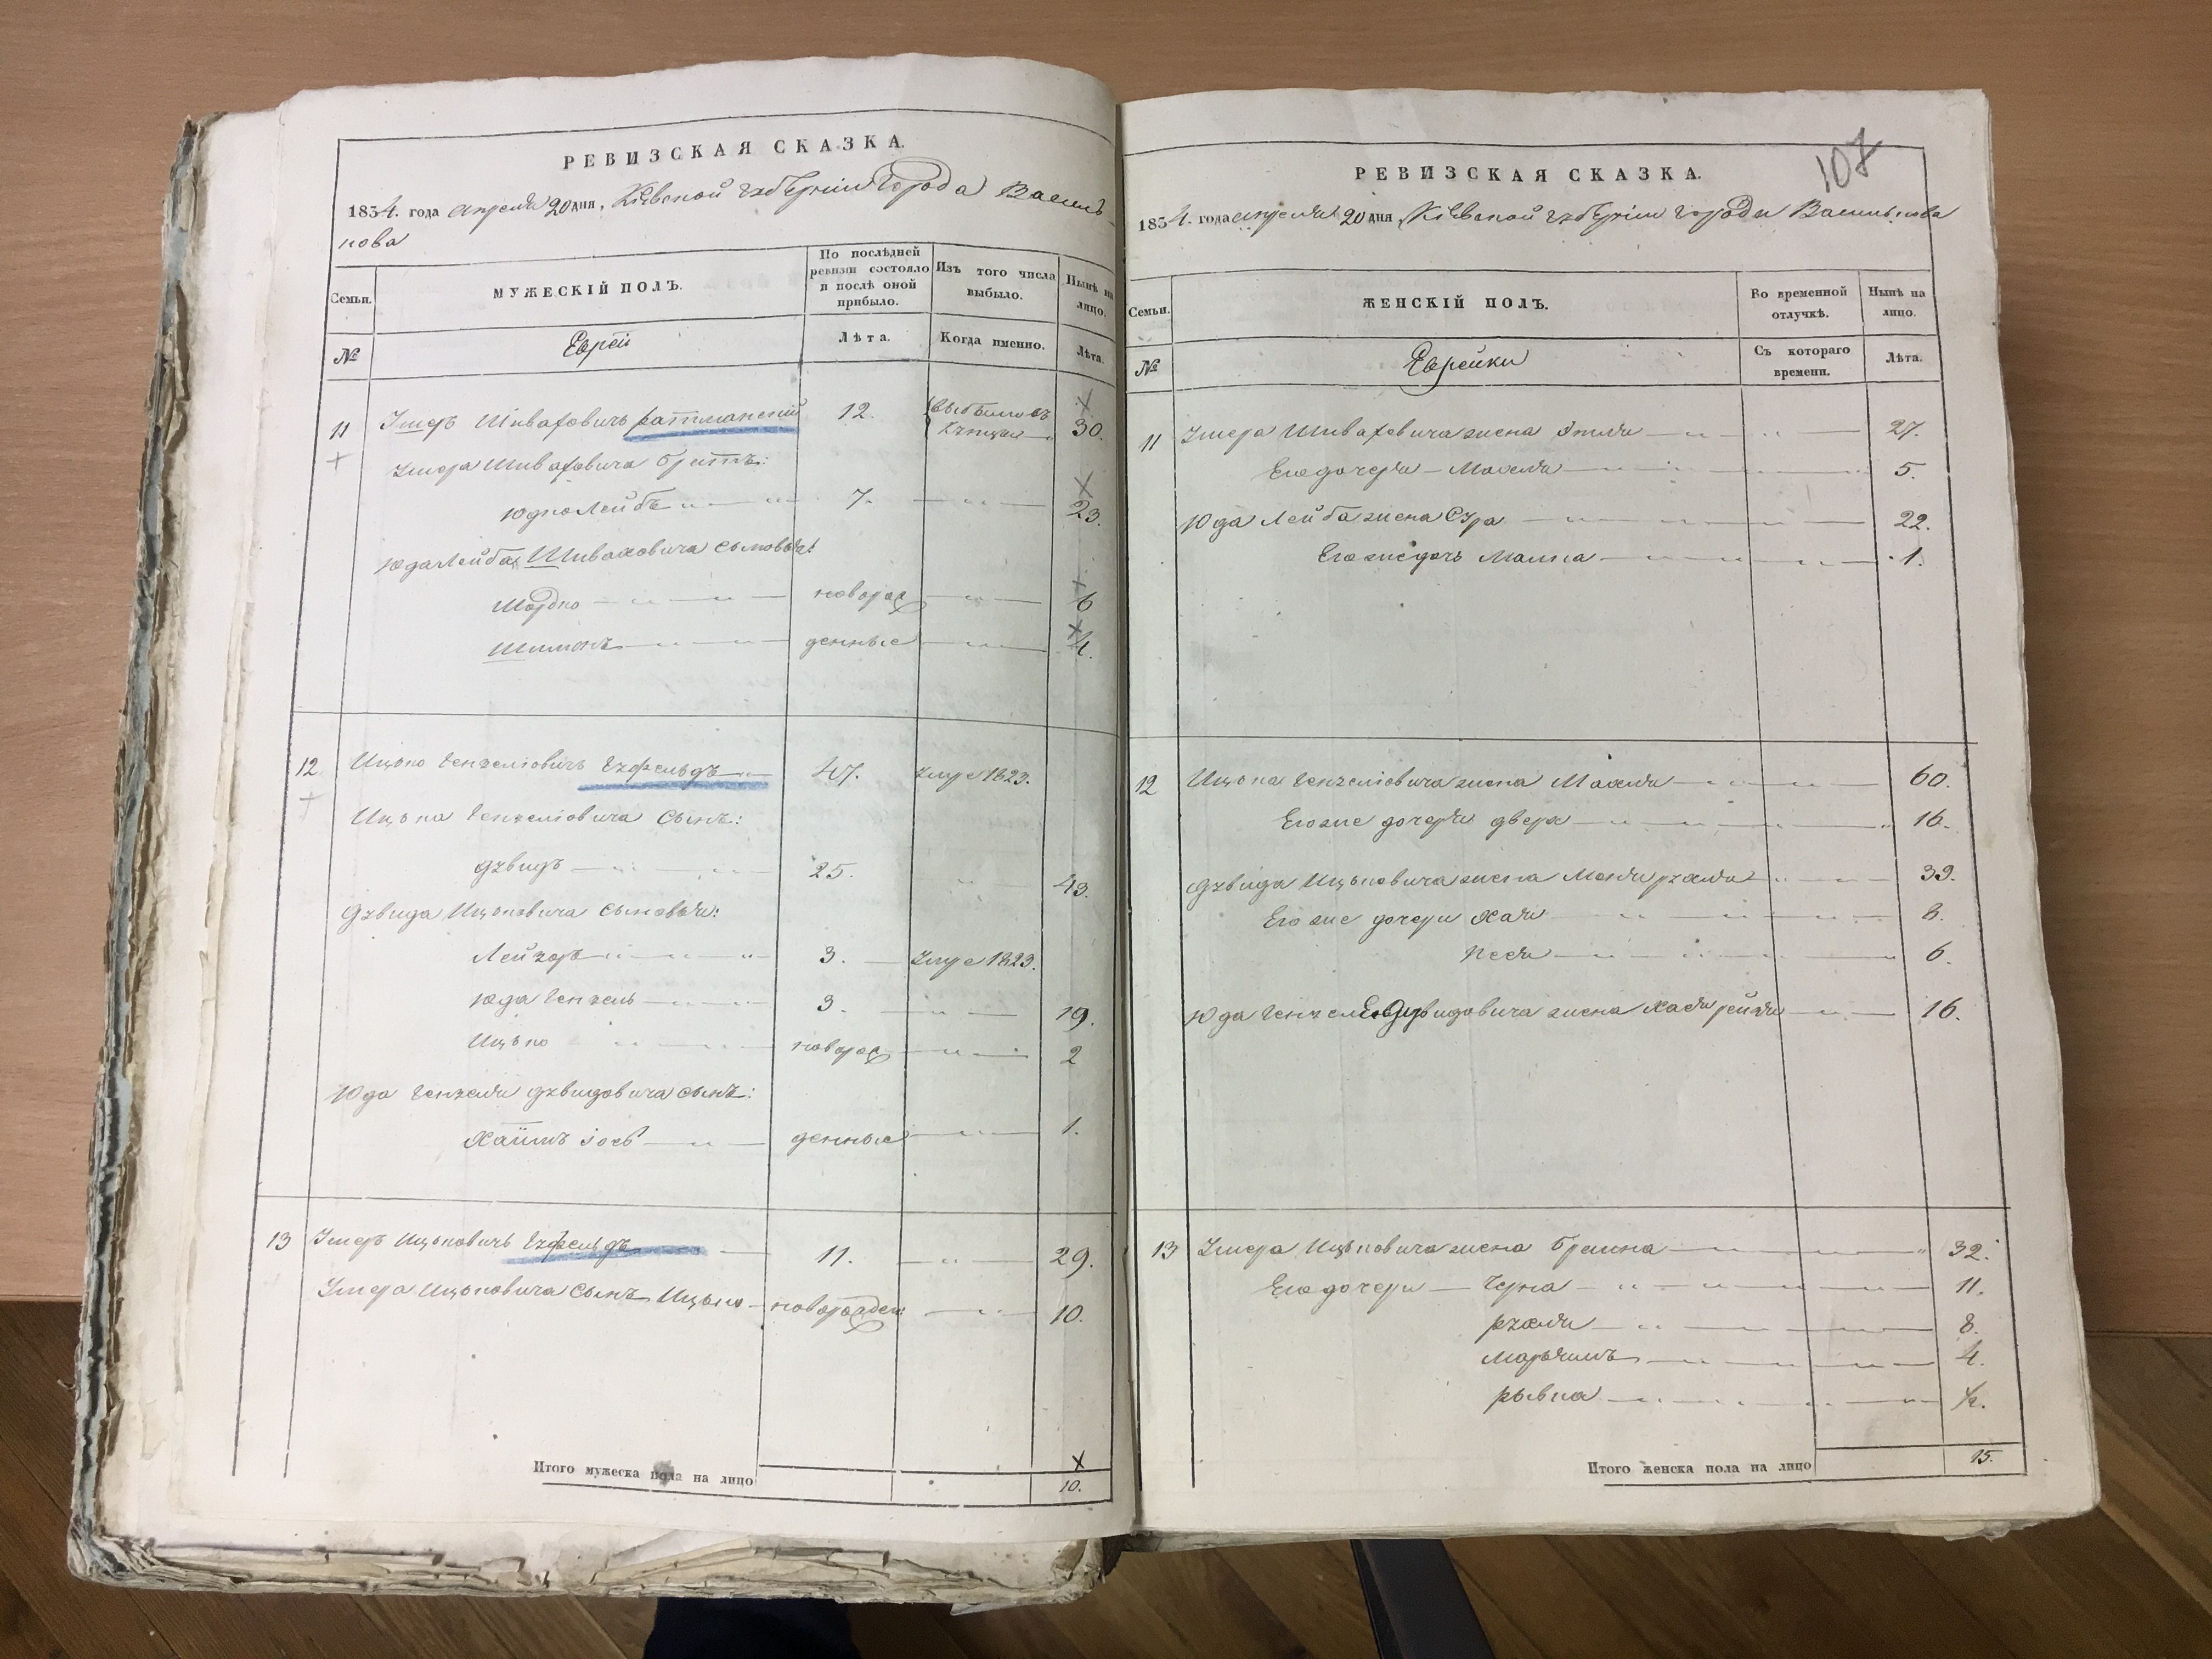 РЕВИЗСКАЯ СКАЗКА.
1834. года апреля 20 дня, Кіевской губерніи города Василь
кова
Семьи.
МУЖЕСКІЙ ПОЛЪ.
По послѣдней ревизіи состояло и послѣ оной прибыло.
Изъ того числа выбыло.
Нынѣ на лицо.
№
Еврей
Лѣта.
Когда именно.
Лѣта.
11 Умеръ Шваховичъ 12. 30.
Умера Шваховича братъ:
Юдко Лейбъ 7. 23.
Юда Лейба Шваховича сыновья:
Мордко новорож 6
Шимонъ денные 4.
12 Ицько Гензелiовичъ 47. умре 1823.
Ицька Гензелiовича сынъ:
Дувидъ 25. 43.
Дувида Ицьковича сыновья:
Лейзоръ 3. умре 1823.
Юда Гензель 3. 19.
Ицько новорож 2
Юда Гензеля Дувидовича сынъ:
Хаимъ Іось денные 1.
13 Умеръ Ицьковичъ 11. 29.
Умера Ицьковича сынъ Ицько новорожден 10.
Итого мужеска пола на лицо
10.
107
РЕВИЗСКАЯ СКАЗКА.
1834. года апреля 20 дня, Кіевской губерніи города Василькова
Семьи.
ЖЕНСКІЙ ПОЛЪ.
Во временной отлучкѣ.
Нынѣ на лицо.
№
Еврейки
Съ котораго времени.
Лѣта.
11 Умера Шваховича жена Этля 27.
Его дочеря Махля 5.
Юда Лейба жена Сура 22.
Его же дочь Малка 1.
12 Ицька Гензелiовича жена Махля 60.
Его же дочеря Двера 16.
Дувида Ицьковича жена рухля 39.
Его же дочери Хая 8.
Песя 6.
Юда Гензеля Дувидовича жена Хася рейзя 16.
13 Умера Ицьковича жена Браина 32.
Его дочери Черна 11.
рухля 8.
Марьямъ 4.
рывка 1/2.
Итого женска пола на лицо
15.